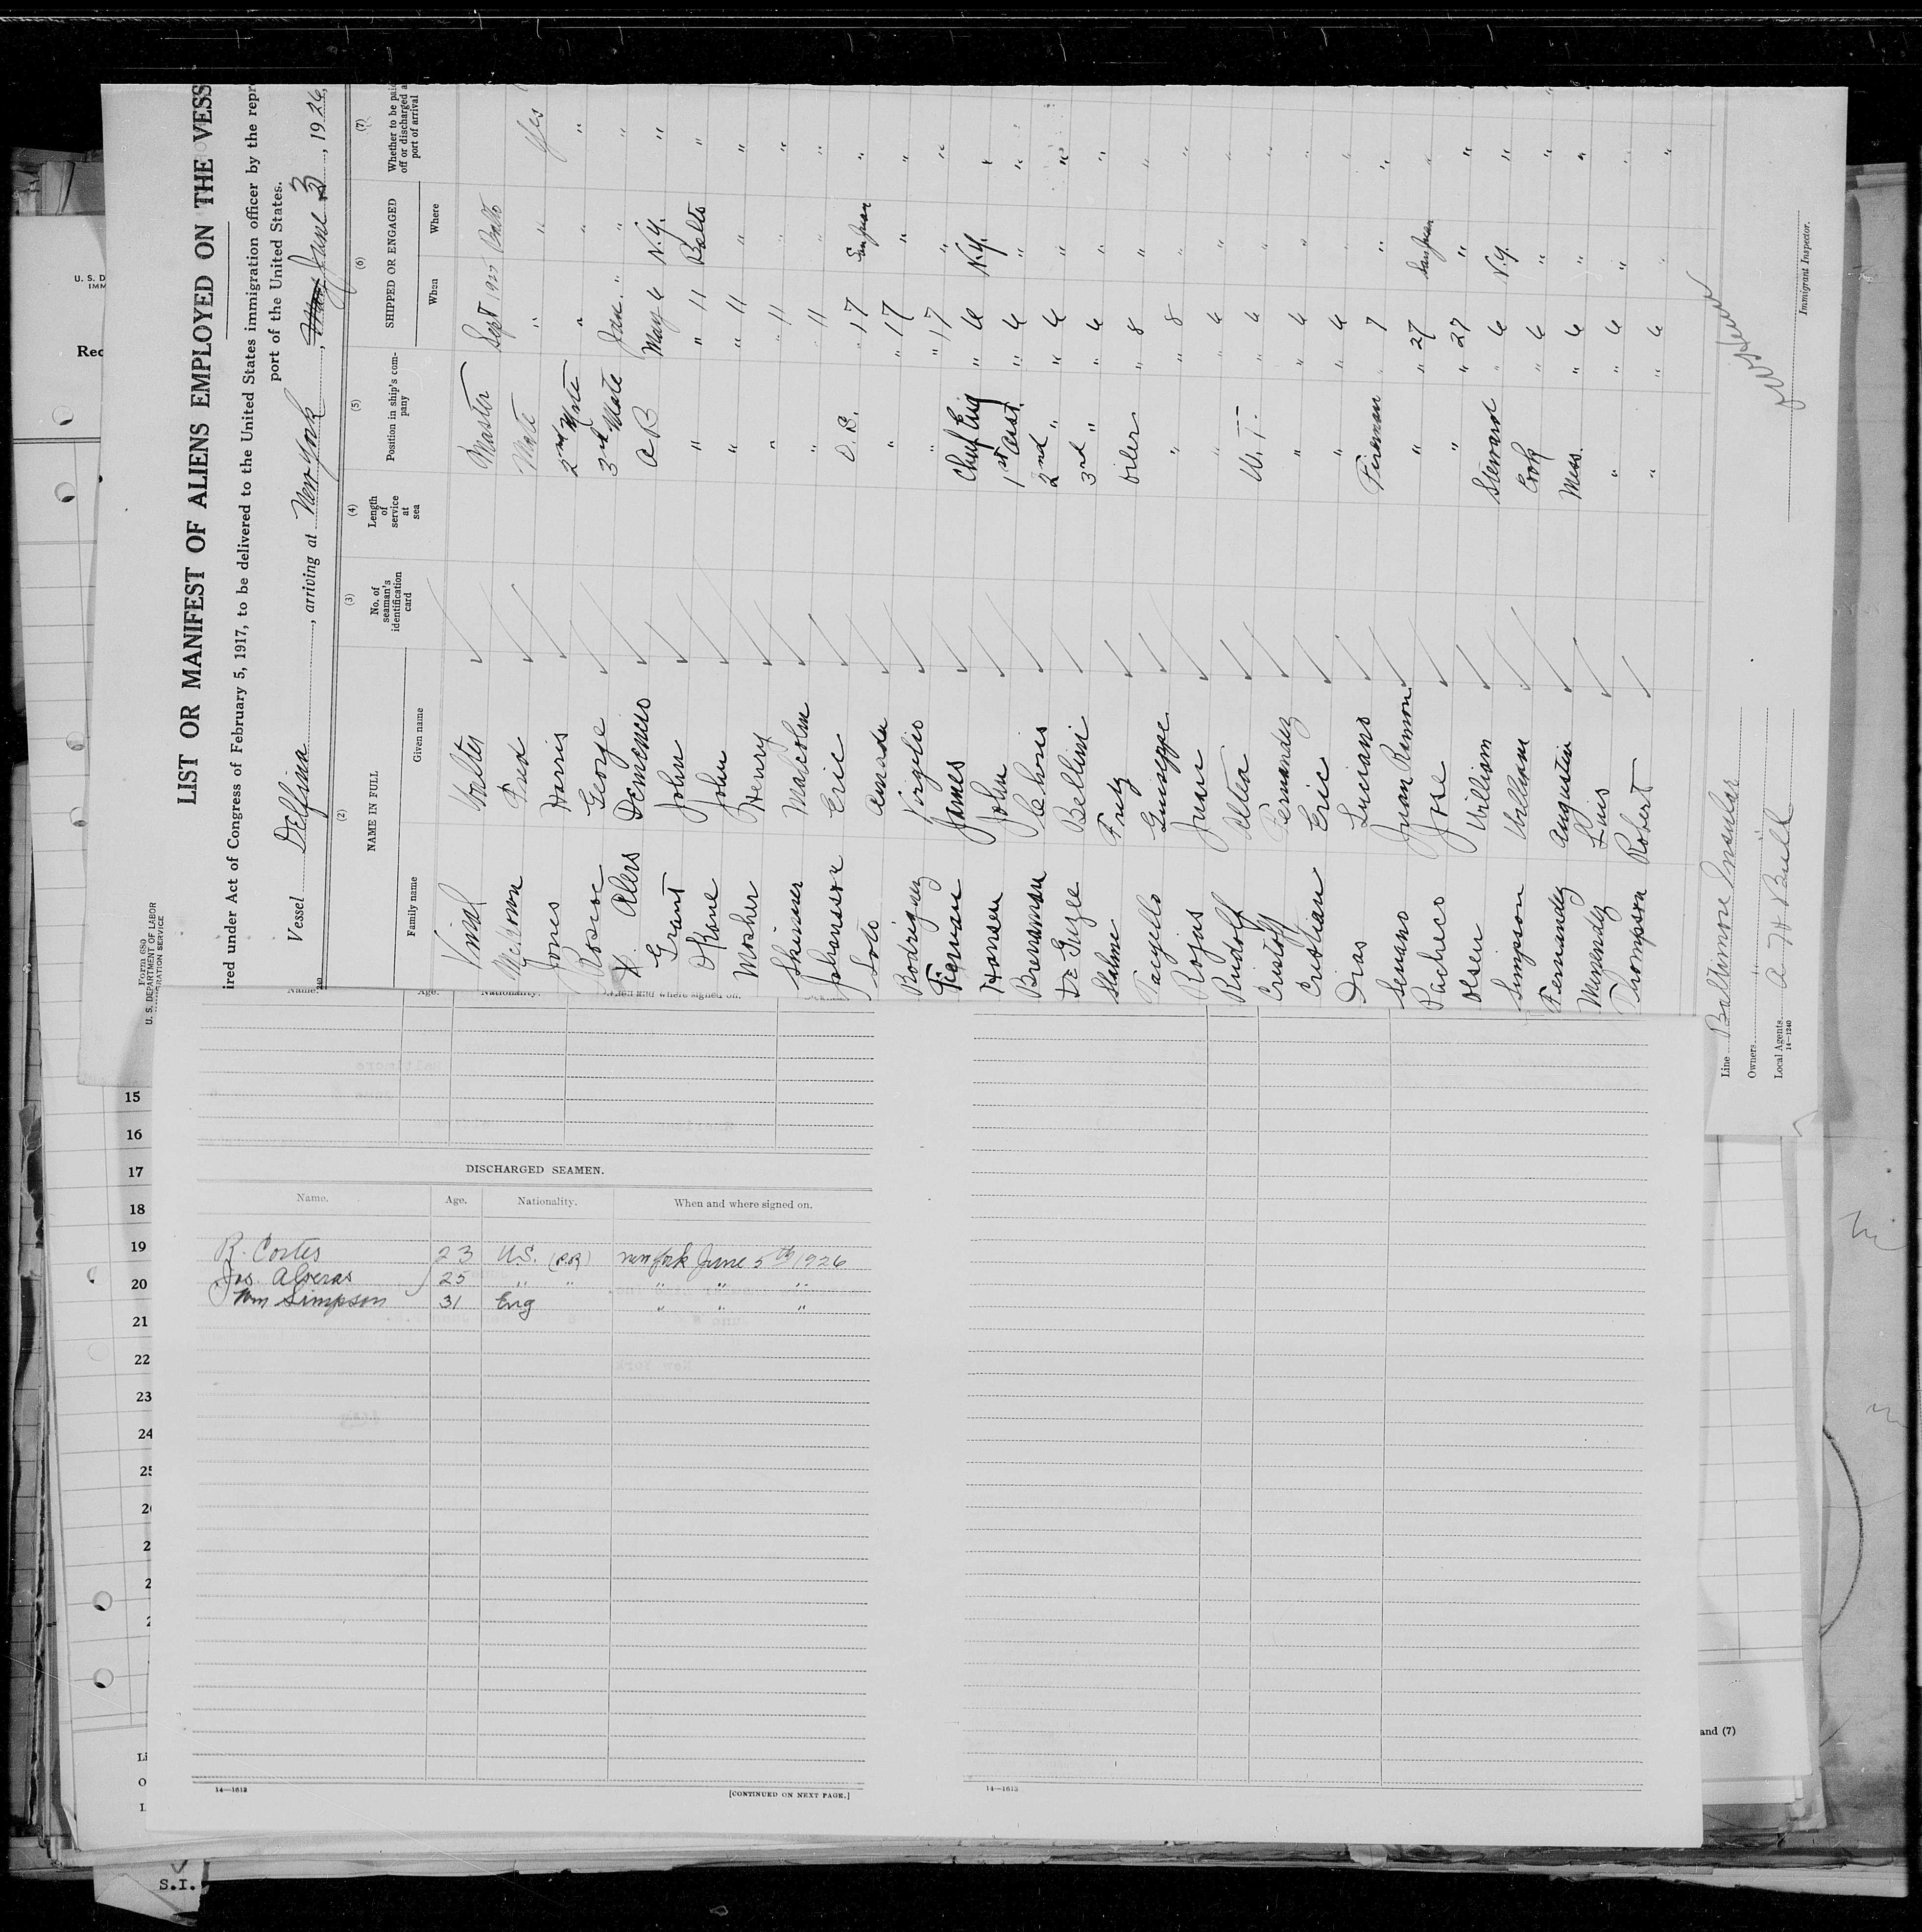 LIST OR MANIFEST OF ALIENS EMPLOYED ON THE VESS
ired under Act of Congress of February 5, 1917, to be delivered to the United States immigration officer by the repr
port of the United States.
Vessel Delfina, arriving at New York, June 3, 1926,
(2) (3) (4) (5) (6) (7)
NAME IN FULL
No. of seaman's identification card
Length of service at sea
Position in ship's company
SHIPPED OR ENGAGED
Whether to be paid off or discharged at port of arrival
Family name Given name When Where
Vinal Walter Master Sept 1925 Balto Yes
Fred Mate " " "
Jones Harris 2nd Mate " " "
Roscoe George 3rd Mate Jan. " " "
X Alers Demencio AB May 6 N.Y. "
Grant John " " 11 Balto "
O'Kane John " " 11 " "
Mosher Henry " " 11 " "
Skinner Malcolm " 11 " "
Johansson Eric O.B. " 17 San Juan "
Soto Amada " " 17 " "
Rodriguez Virgilio " " 17 " "
Tiervan James Chief Eng " 6 N.Y. "
Hansen John 1st Asst. " 6 " "
Brennman Chris 2nd " " 6 " "
De Guzee Bellini 3rd " " 6 " "
Stalme Fritz Oiler " 8 " "
Taegello Guiseppe " " 8 " "
Rojas Juan " " 6 " "
Rudolf W.T. " 6 " "
Cristoff Fernandez " " 6 " "
Cristian Eric " " 6 " "
Dias Luciano Fireman " 7 " "
Serrano Juan Ramon " " 27 San Juan "
Pacheco Jose " " 27 " "
Olsen William Steward " 6 N.Y. "
Simpson William Cook " 6 " "
Fernandez Augustin Mess. " 6 " "
Menendez Luis " " 6 " "
Thompson Robert " " 6 " "
Line Baltimore Insular
Owners " "
Local Agents A H Bull
14—1240
Immigrant Inspector.
Form 680
U. S. DEPARTMENT OF LABOR
IMMIGRATION SERVICE
240
U. S. D
IMM
Rec
Name. Age. Nationality. When and where signed on.
DISCHARGED SEAMEN.
Name. Age. Nationality. When and where signed on.
R. Cortes 23 U.S. (P.R) New York June 5th 1926
Jos. Alveras 25 " " " " "
Wm Simpson 31 Eng " " "
14—1613
[CONTINUED ON NEXT PAGE.]
14—1613
15
16
17
18
19
20
21
22
23
24
25
and (7)
S.I.